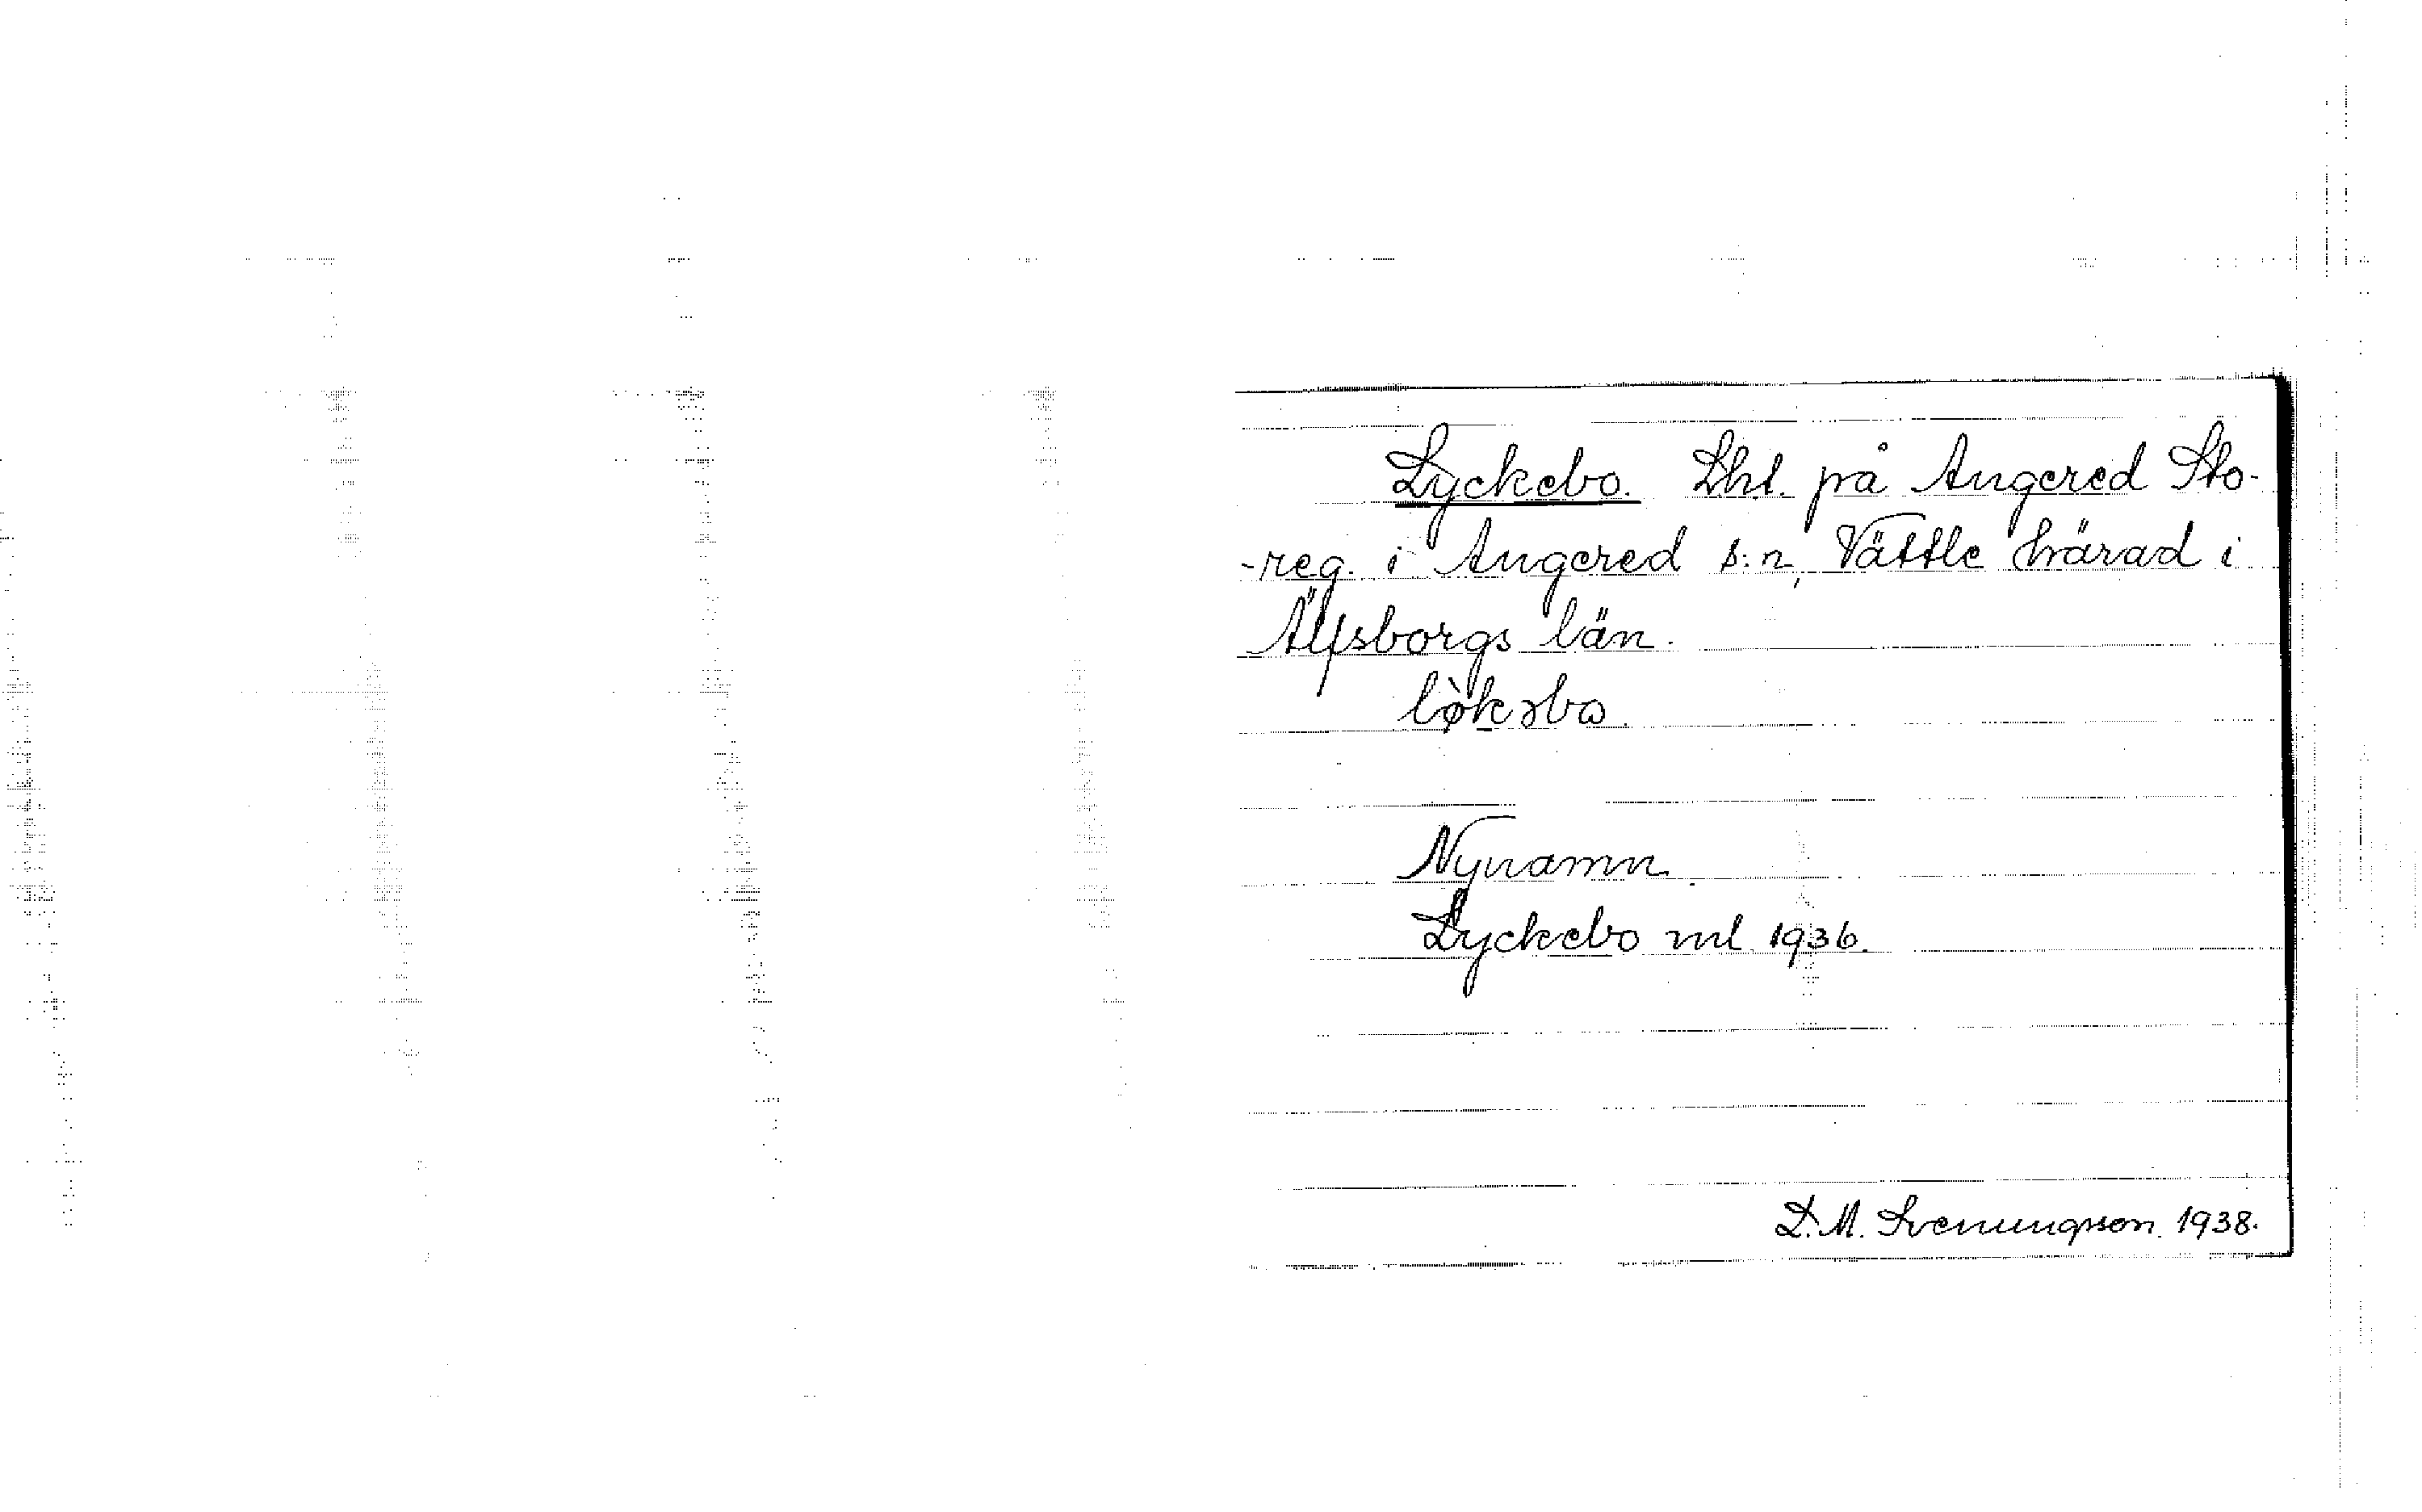 Lyckebo. Lht. på Angered Sto-
-reg. i Angered s:n, Vättle härad i
Älfsborgs län.
lø̀kəbo.
Nynamn.
Lyckebo ml 1936.
L. M. Svenungsson. 1938.